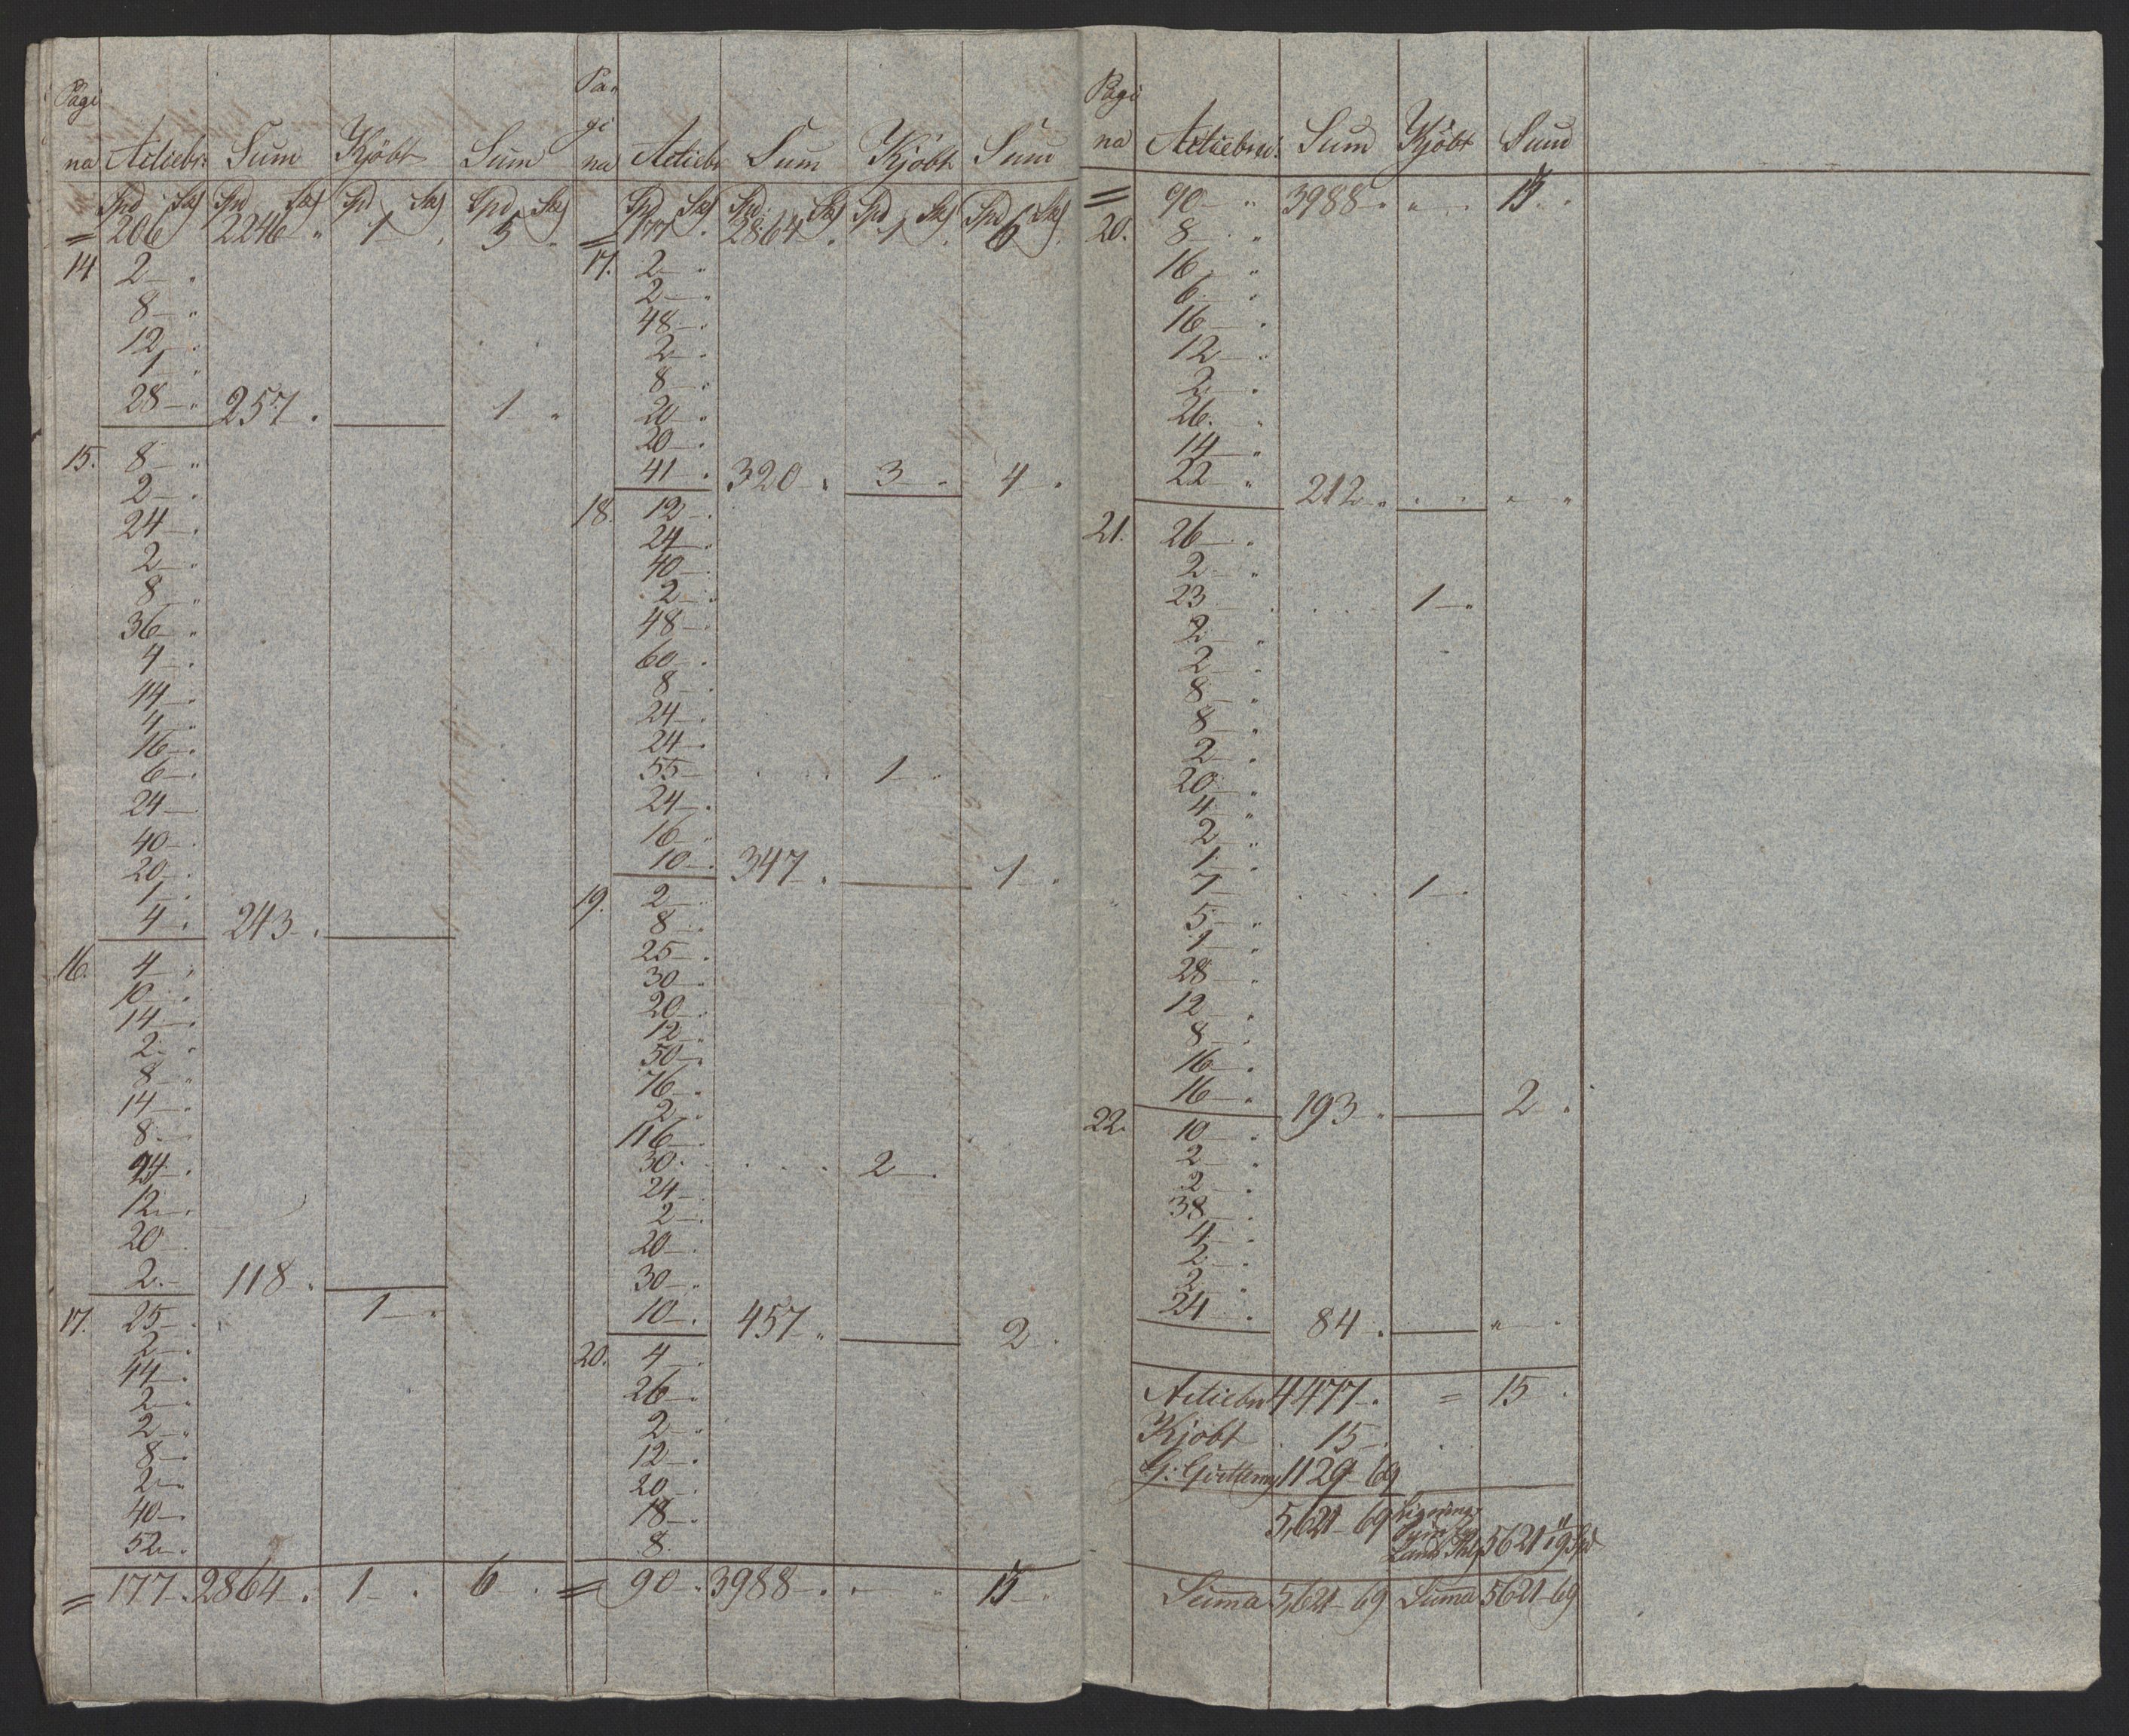 Pagi
na Actiebr: Sum Kjöbt Sum
Spd Sk Spd Sk Spd Sk Spd Sk
= 206 2246 " 1 " 5 "
14. 2 "
8 "
12 "
1 "
28 " 257 . 1 "
15. 8 "
2 "
24 .
2 .
8 "
36 "
4 .
44 .
4 "
16 .
6 .
24
40 .
20 .
1 .
4 . 243 .
16. 4 .
10 .
14 .
2 .
8 "
14 .
8 .
24 .
12 .
20
2 . 118 .
17. 25 . 1 .
2 .
44 .
2 .
2 "
8 .
2 "
40 .
52 .
= 177 . 2864 . 1 . 6 .
Pa-
gi
na Actiebr Sum Kjöbt Sum
Spd Sk Spd: Sk Spd Sk Spd Sk
= 177 . 2864 . 1 . 6 .
17. 2 "
2 "
48 .
2 .
8 "
20 .
20 .
41 . 320 . 3 . 4 .
18. 12 .
24 .
40 .
2 .
48 .
60 .
8 .
24 .
24 .
55 . 1 .
24 .
16 "
10 . 347 . 1 .
19. 2 .
8 .
25 .
30 .
20 .
12 .
50 .
76 .
2 .
116 .
30 . 2 .
24 .
2 .
20 .
30 .
10 . 457 " 2 .
20. 4 .
26 .
2 "
12 .
20 .
18 .
8
= 90 . 3988 . " " 15 "
Pagi
na Actiebrs: Sum Kjöbt Sum
= 90 " 3988 . " . 15 .
20. 8 "
16 "
6 "
16 .
12 "
2 .
26 "
14 "
22 " 212 " . . " "
21. 26 .
2 "
23 . 1 "
2 "
2 .
8 .
8 "
2 "
20 "
4 "
2 "
1 .
7 1 .
5 "
1 "
28 .
12 .
8 .
16 .
16 . 193 " 2 .
22. 10 .
2 "
2 .
38 .
4 .
2 .
2 "
24 . 84 . " .
Actiebr 4477 . = 15 .
Kjöbt . 15 .
1129 69
5,621 69 5621 "
Summa 5,621 69 Summa 5621 69